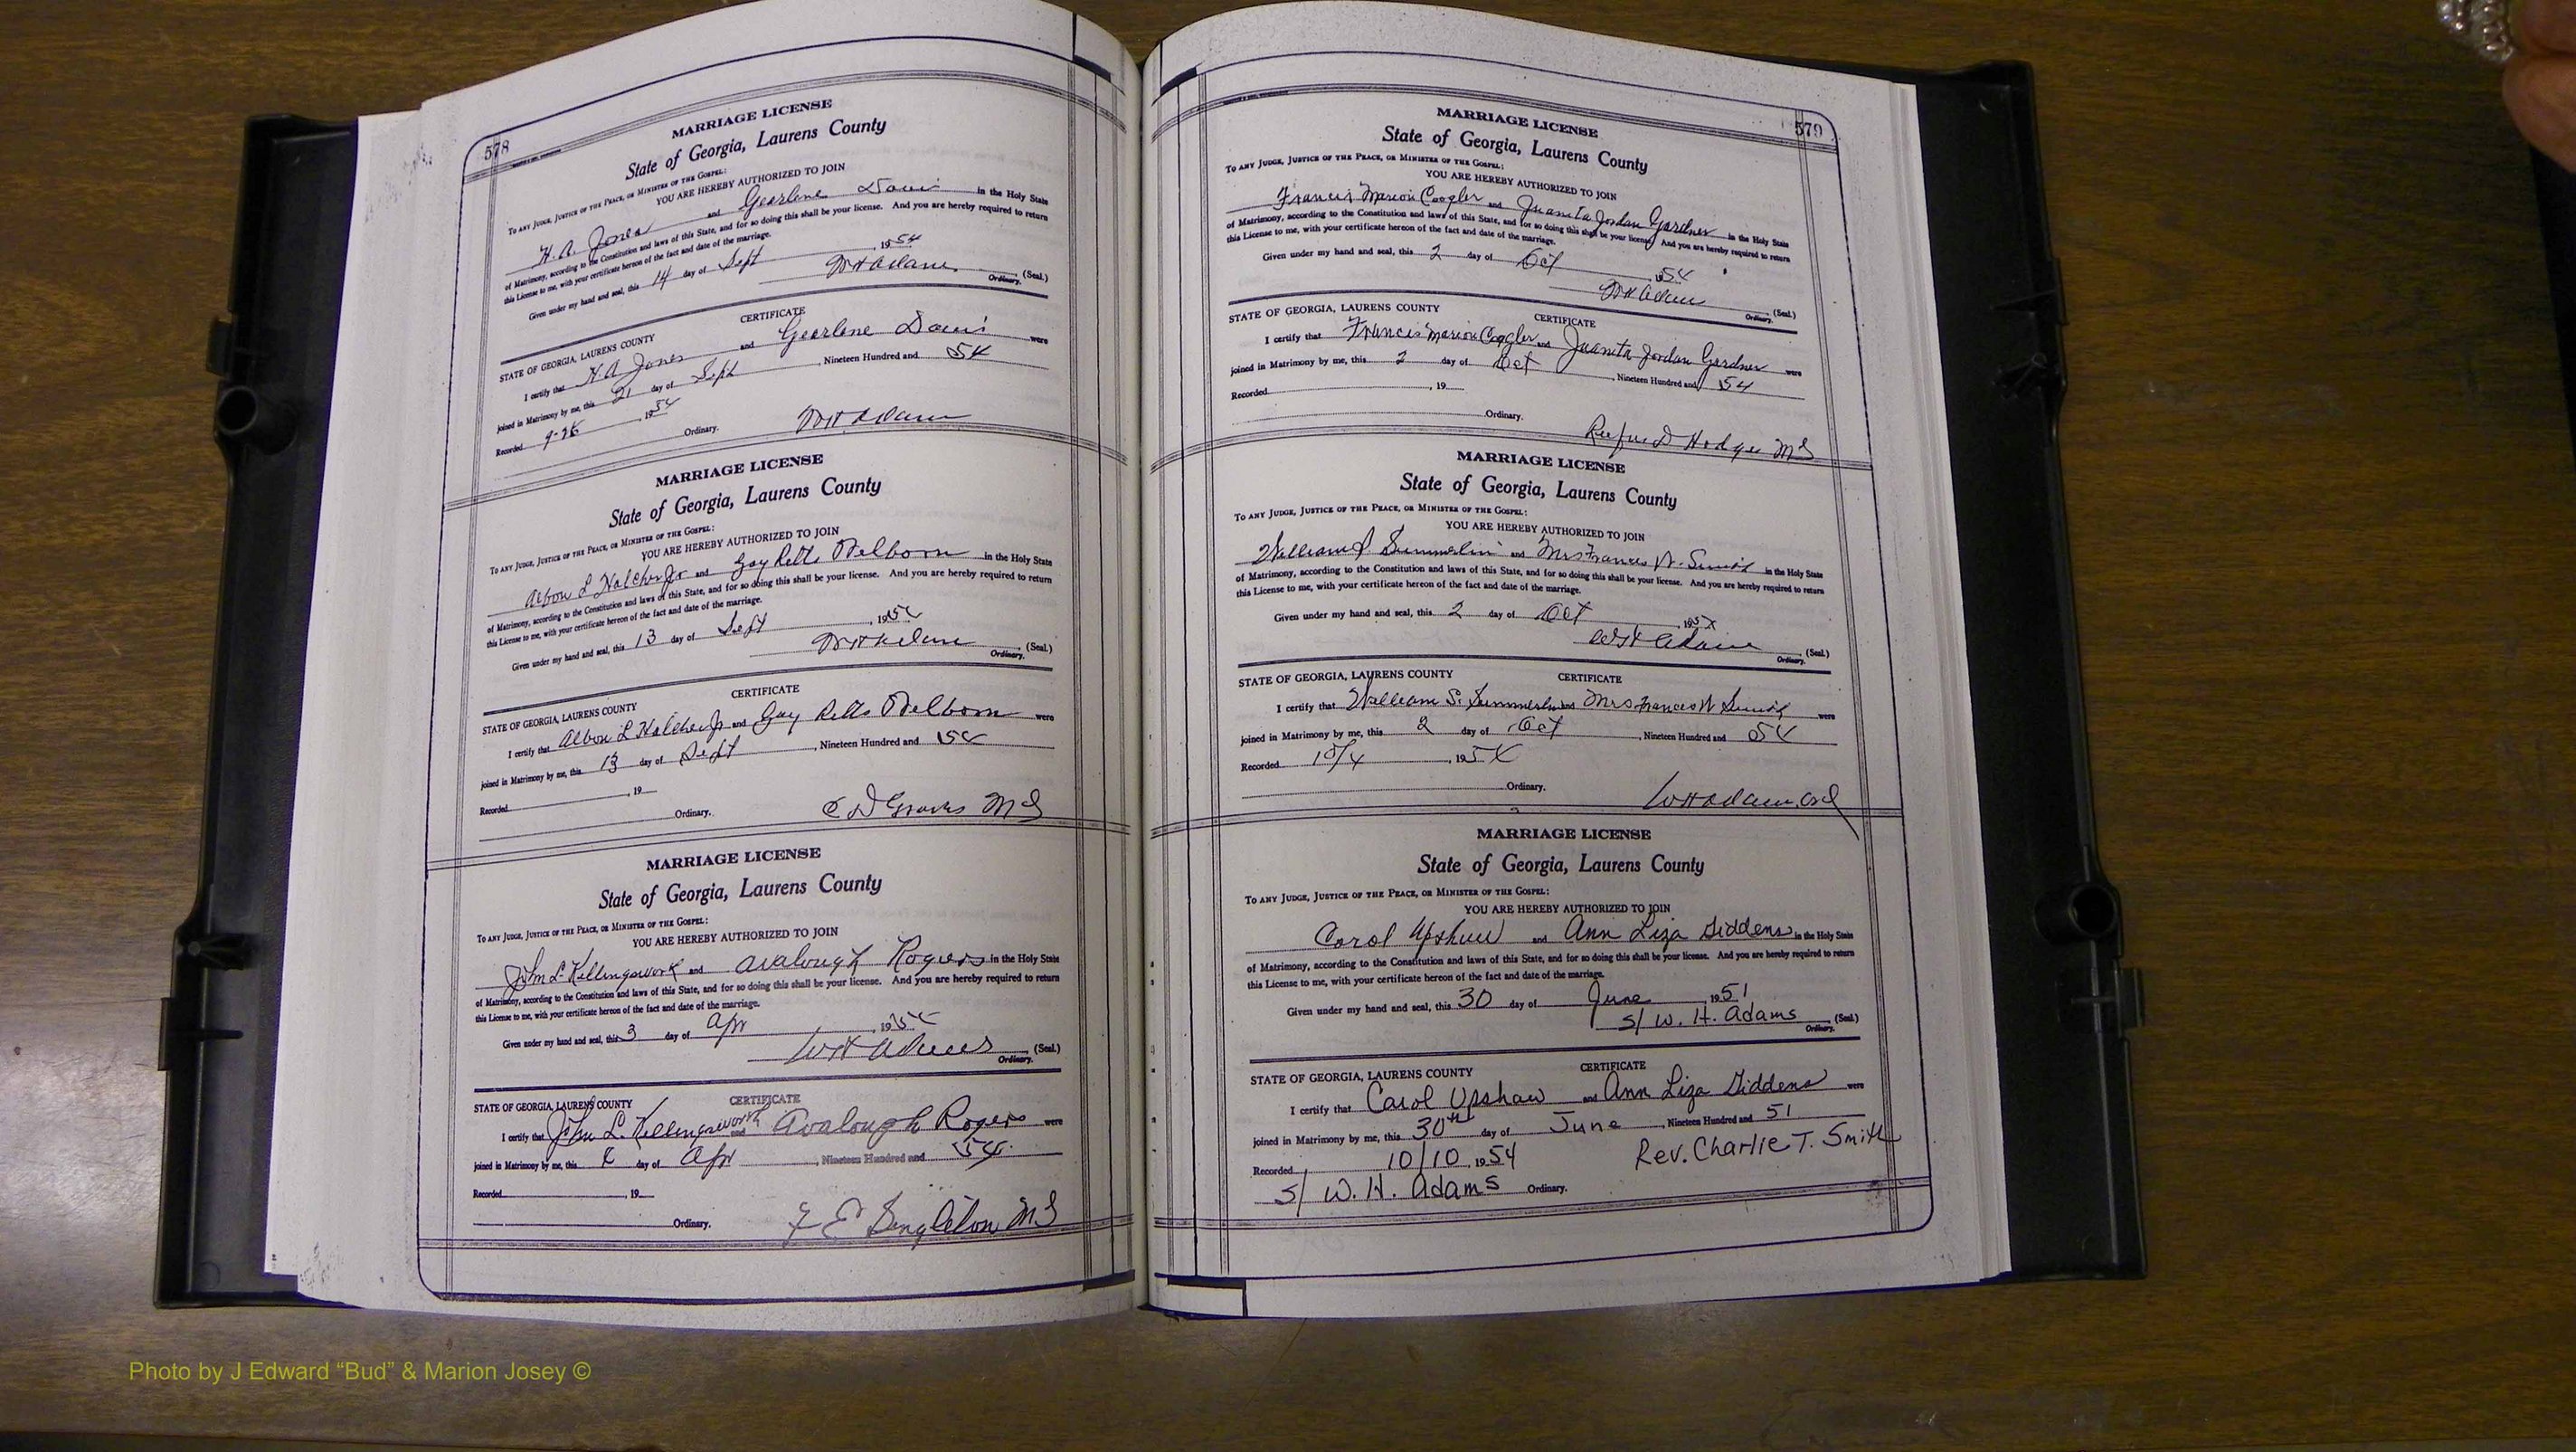 578
MARRIAGE LICENSE
State of Georgia, Laurens County
To any Judge, Justice of the Peace, or Minister of the Gospel:
YOU ARE HEREBY AUTHORIZED TO JOIN
H. A. Jones and Gearlene Davis in the Holy State
of Matrimony, according to the Constitution and laws of this State, and for so doing this shall be your license. And you are hereby required to return
this License to me, with your certificate hereon of the fact and date of the marriage.
Given under my hand and seal, this 14 day of Sept, 1954
W H Adams (Seal.)
Ordinary.
CERTIFICATE
STATE OF GEORGIA, LAURENS COUNTY
I certify that H. A. Jones and Gearlene Davis were
joined in Matrimony by me, this 21 day of Sept, Nineteen Hundred and 54
Recorded 9-28, 1954
Ordinary. W H Adams
MARRIAGE LICENSE
State of Georgia, Laurens County
To any Judge, Justice of the Peace, or Minister of the Gospel:
YOU ARE HEREBY AUTHORIZED TO JOIN
Albon L Hatcher Jr and Gay in the Holy State
of Matrimony, according to the Constitution and laws of this State, and for so doing this shall be your license. And you are hereby required to return
this License to me, with your certificate hereon of the fact and date of the marriage.
Given under my hand and seal, this 13 day of Sept, 1954
W H Adams (Seal.)
Ordinary.
CERTIFICATE
STATE OF GEORGIA, LAURENS COUNTY
I certify that Albon L Hatcher Jr and Gay were
joined in Matrimony by me, this 13 day of Sept, Nineteen Hundred and 54
Recorded, 19
Ordinary. C D Graves M G
MARRIAGE LICENSE
State of Georgia, Laurens County
To any Judge, Justice of the Peace, or Minister of the Gospel:
YOU ARE HEREBY AUTHORIZED TO JOIN
John L. Killingsworth and Avalough Rogers in the Holy State
of Matrimony, according to the Constitution and laws of this State, and for so doing this shall be your license. And you are hereby required to return
this License to me, with your certificate hereon of the fact and date of the marriage.
Given under my hand and seal, this 3 day of Apr, 1954
W H Adams (Seal.)
Ordinary.
CERTIFICATE
STATE OF GEORGIA, LAURENS COUNTY
I certify that John L. Killingsworth and Avalough Rogers were
joined in Matrimony by me, this day of Apr, Nineteen Hundred and 54
Recorded, 19
Ordinary. F E Singleton M G
579
MARRIAGE LICENSE
State of Georgia, Laurens County
To any Judge, Justice of the Peace, or Minister of the Gospel:
YOU ARE HEREBY AUTHORIZED TO JOIN
Francis Marion Coogler and Juanita Jordan Gardner in the Holy State
of Matrimony, according to the Constitution and laws of this State, and for so doing this shall be your license. And you are hereby required to return
this License to me, with your certificate hereon of the fact and date of the marriage.
Given under my hand and seal, this 2 day of Oct, 1954
W H Adams (Seal.)
Ordinary.
CERTIFICATE
STATE OF GEORGIA, LAURENS COUNTY
I certify that Francis Marion Coogler and Juanita Jordan Gardner were
joined in Matrimony by me, this 2 day of Oct, Nineteen Hundred and 54
Recorded, 19
Ordinary.
Rufus D Hodges M G
MARRIAGE LICENSE
State of Georgia, Laurens County
To any Judge, Justice of the Peace, or Minister of the Gospel:
YOU ARE HEREBY AUTHORIZED TO JOIN
William S. Summerlin and Mrs Frances W. Smith in the Holy State
of Matrimony, according to the Constitution and laws of this State, and for so doing this shall be your license. And you are hereby required to return
this License to me, with your certificate hereon of the fact and date of the marriage.
Given under my hand and seal, this 2 day of Oct, 1954
W H Adams (Seal.)
Ordinary.
CERTIFICATE
STATE OF GEORGIA, LAURENS COUNTY
I certify that William S. Summerlin and Mrs Frances W Smith were
joined in Matrimony by me, this 2 day of Oct, Nineteen Hundred and 54
Recorded 10/4, 1954
Ordinary. W H Adams, Ord
MARRIAGE LICENSE
State of Georgia, Laurens County
To any Judge, Justice of the Peace, or Minister of the Gospel:
YOU ARE HEREBY AUTHORIZED TO JOIN
Carol Upshaw and Ann Liza Giddens in the Holy State
of Matrimony, according to the Constitution and laws of this State, and for so doing this shall be your license. And you are hereby required to return
this License to me, with your certificate hereon of the fact and date of the marriage.
Given under my hand and seal, this 30 day of June, 1951
S/ W. H. Adams (Seal.)
Ordinary.
CERTIFICATE
STATE OF GEORGIA, LAURENS COUNTY
I certify that Carol Upshaw and Ann Liza Giddens were
joined in Matrimony by me, this 30th day of June, Nineteen Hundred and 51
Recorded 10/10, 1954 Rev. Charlie T. Smith
S/ W. H. Adams Ordinary.
Photo by J Edward “Bud” & Marion Josey ©